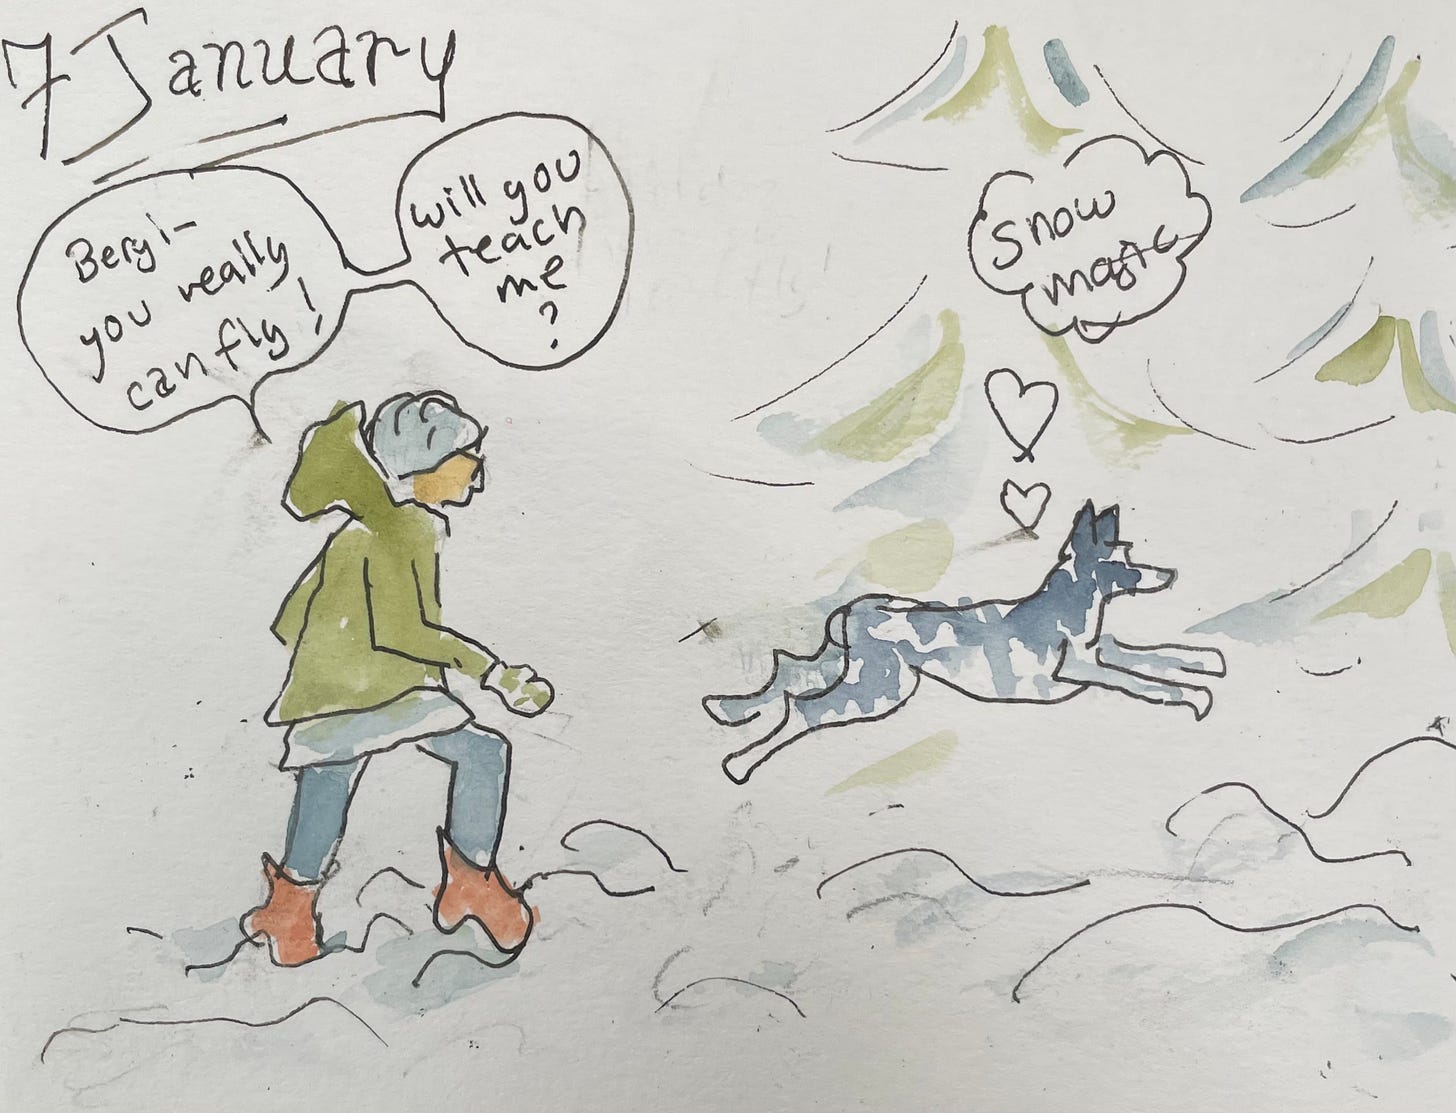 7 January
Beryl-
you really
can fly!
will you
teach
me
?
Snow
magic